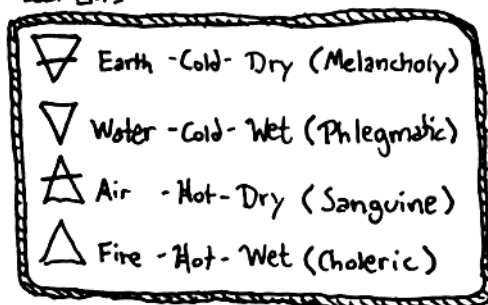 Earth - Cold - Dry (Melancholy)
Water - Cold - Wet (Phlegmatic)
Air - Hot - Dry (Sanguine)
Fire - Hot - Wet (Choleric)